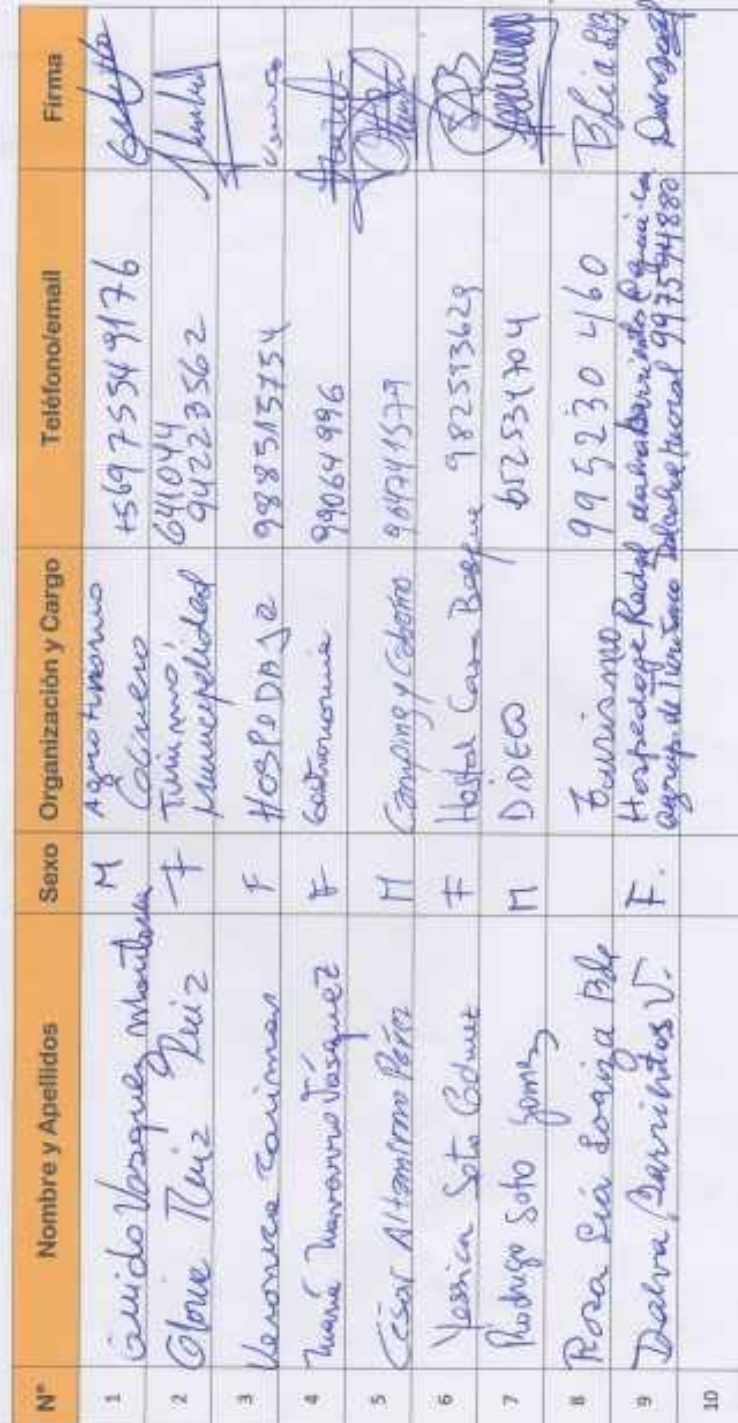 N° Nombre y Apellidos Sexo Organización y Cargo Teléfono/email Firma
1 Guido Vasquez M Agroturismo +56975549176
2 Gloria Ruiz Ruiz F Turismo, Municipalidad 641044
942223562
3 Veronica F HOSPEDAJE 988515754
4 María Navarro Vásquez F Gastronomia 99064996
5 César Altamirano Pérez M Camping y 964741579
6 Yessica Soto Gómez F Hostal Casa Bosque 982513629
7 Rodrigo Soto Gomez M DIDECO 652534704
8 Rosa Lía Turismo 995230460
9 Dalva Barrientos V. F. Hospedaje Radal
Agrup. de Turismo rural 997594880
10